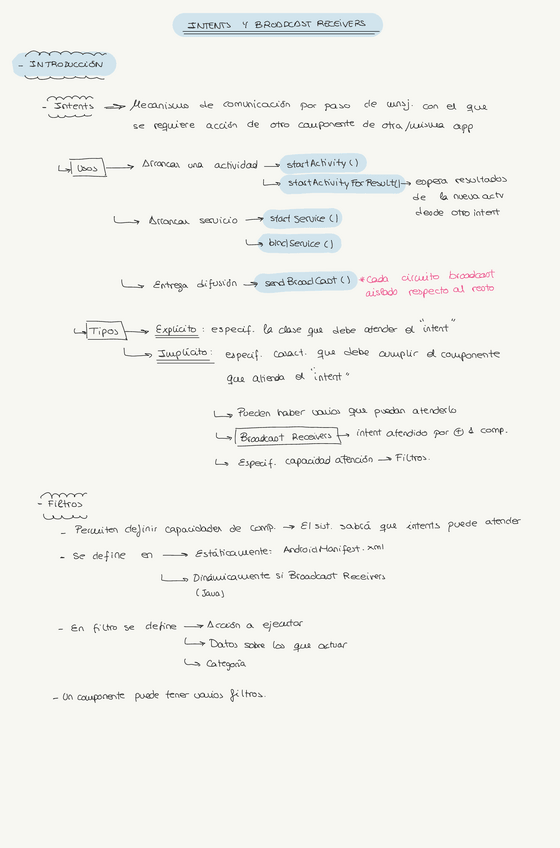 INTENTS Y BROADCAST RECEIVERS
- INTRODUCCIÓN
- Intents → Mecanismo de comunicación por paso de mnsj. con el que
se requiere acción de otro componente de otra/misma app
↳ Usos → Arrancar una actividad → startActivity()
↳ startActivityForResult() → espera resultados
de la nueva actv
desde otro intent
↳ Arrancar servicio → startService()
↳ bindService()
↳ Entrega difusión → sendBroadCast() * Cada circuito broadcast
aislado respecto al resto
↳ Tipos → Explícito: especif. la clase que debe atender el "intent"
↳ Implícito: especif. caract. que debe cumplir el componente
que atienda el "intent"
↳ Pueden haber varios que puedan atenderlo
↳ Broadcast Receivers → intent atendido por ⊕ 1 comp.
↳ Especif. capacidad atención → Filtros.
- Filtros
- Permiten definir capacidades de comp. → El sist. sabrá que intents puede atender
- Se define en → Estáticamente: AndroidManifest.xml
↳ Dinámicamente si Broadcast Receivers
(Java)
- En filtro se define → Acción a ejecutar
↳ Datos sobre los que actuar
↳ Categoría
- Un componente puede tener varios filtros.